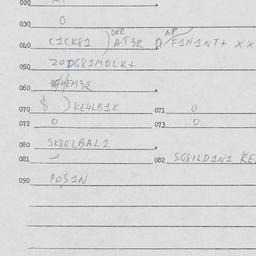 020
030 0
040 C1CK81 ) AT3R F1N1NT+ XX
050 20DG81MOLK+
060 HEM3R
070 $ ) KE4LB1K 071 0
072 0 073 0
080 SK8ELBAL2
081 - 082 SG8ILD1N1 KE
090 POS1N